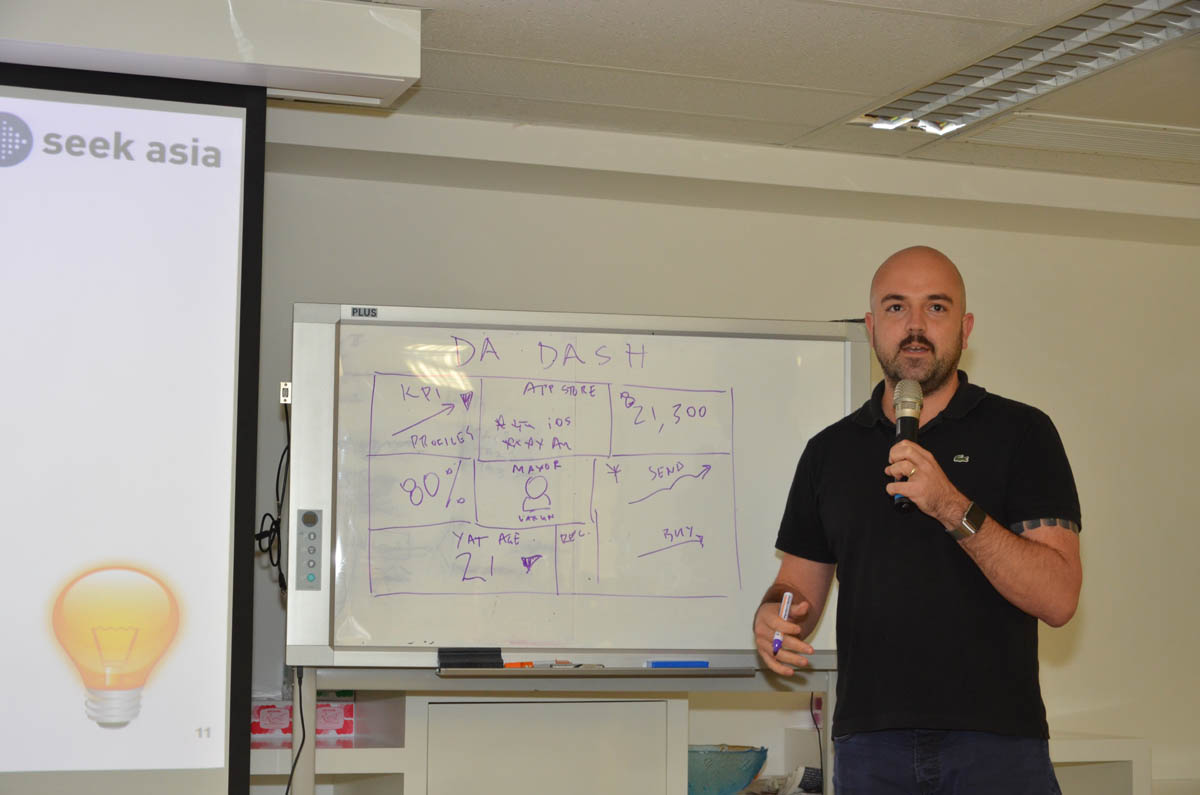 seek asia
11
PLUS
DA DASH
KPI
PROFILES
APP STORE
iOS
21,300
80%
MAYOR
VARUN
SEND
YAT AGE
21
REC.
BUY